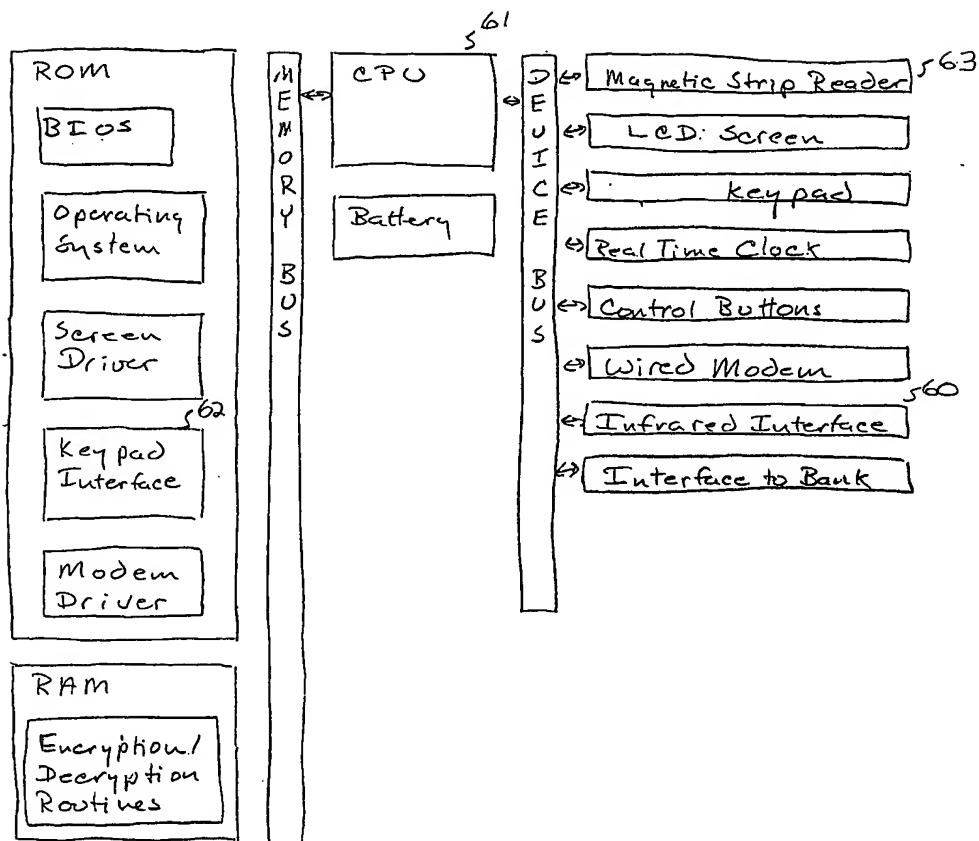 ROM
BIOS
Operating
System
Screen
Driver
62
Keypad
Interface
Modem
Driver
RAM
Encryption/
Decryption
Routines
MEMORY BUS
61
CPU
Battery
DEVICE BUS
63
Magnetic Strip Reader
LCD: Screen
Keypad
Real Time Clock
Control Buttons
Wired Modem
60
Infrared Interface
Interface to Bank